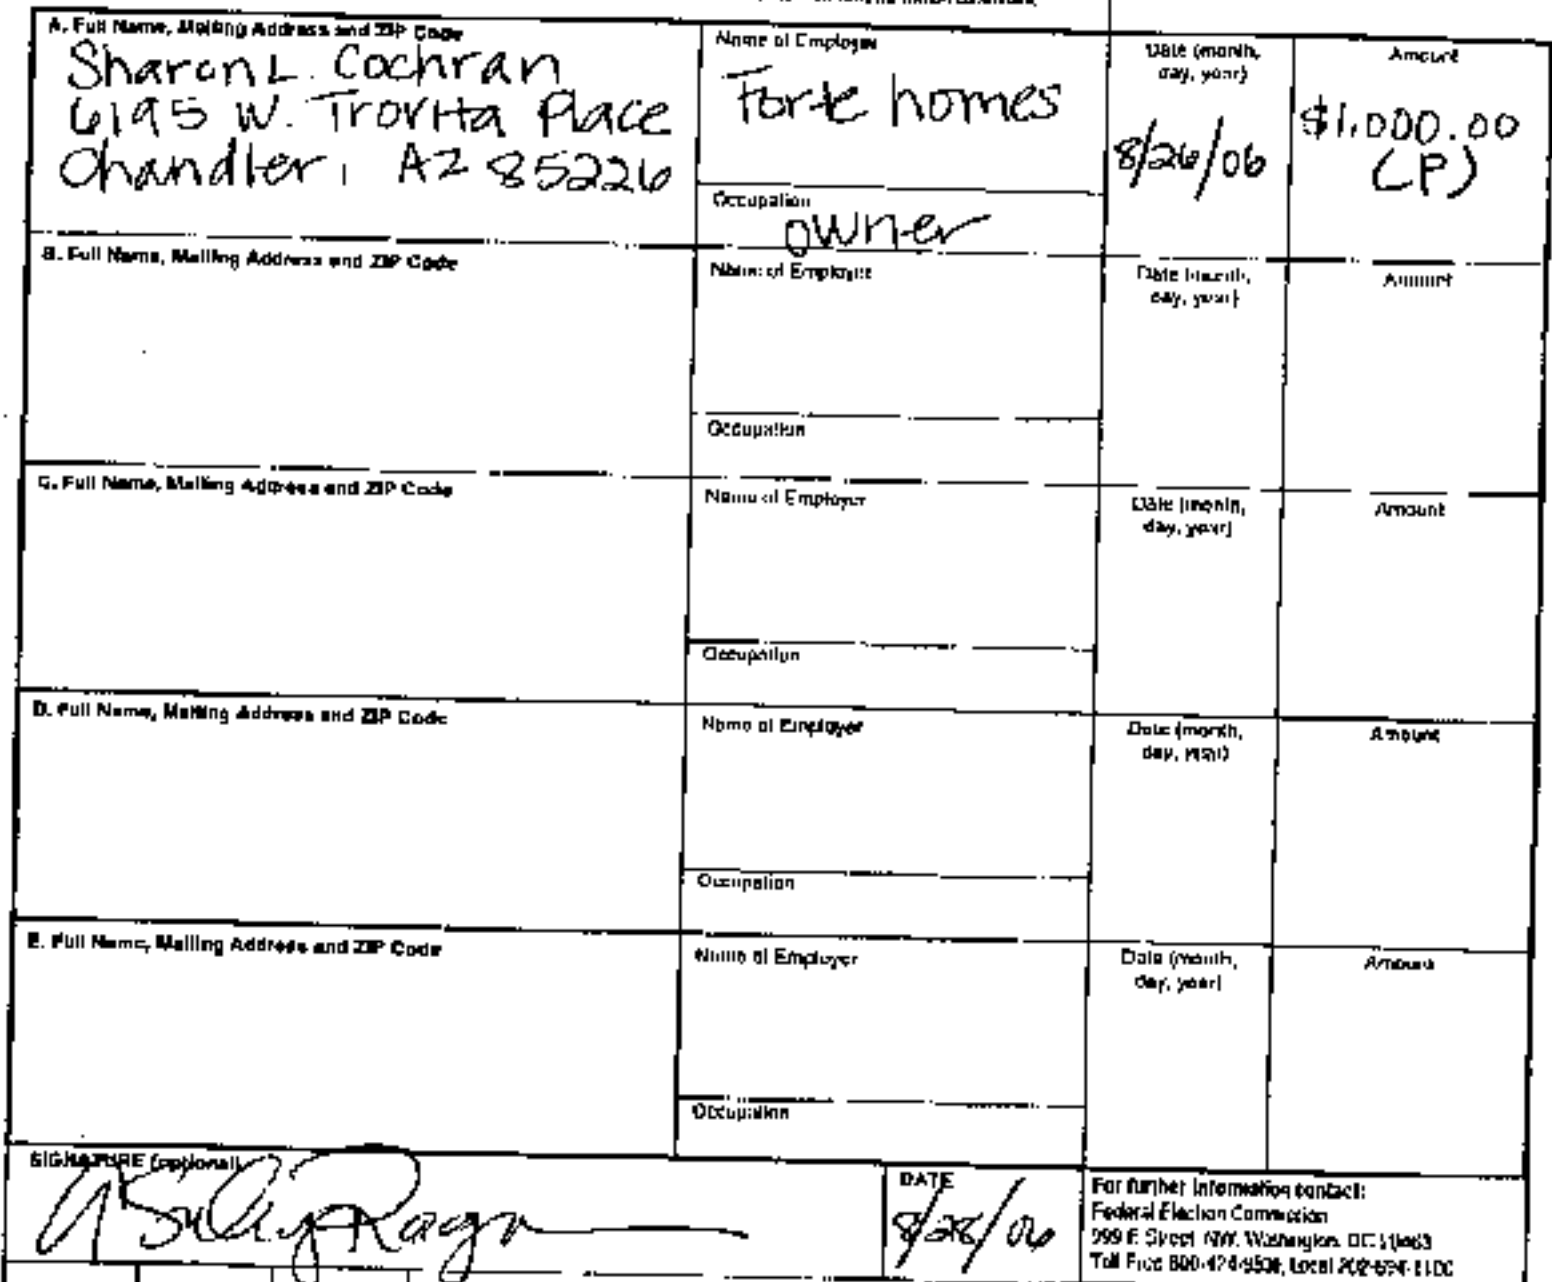 A. Full Name, Mailing Address and ZIP Code
Sharon L. Cochran
6195 W. Trovita Place
Chandler, AZ 85226
Name of Employer
Forte homes
Occupation
owner
Date (month,
day, year)
8/26/06
Amount
$1,000.00
(P)
B. Full Name, Mailing Address and ZIP Code
Name of Employer
Occupation
Date (month,
day, year)
Amount
C. Full Name, Mailing Address and ZIP Code
Name of Employer
Occupation
Date (month,
day, year)
Amount
D. Full Name, Mailing Address and ZIP Code
Name of Employer
Occupation
Date (month,
day, year)
Amount
E. Full Name, Mailing Address and ZIP Code
Name of Employer
Occupation
Date (month,
day, year)
Amount
SIGNATURE (optional)
DATE
8/28/06
For further information contact:
Federal Election Commission
999 E Street, NW, Washington, DC 20463
Toll Free 800-424-9530, Local 202-694-1100